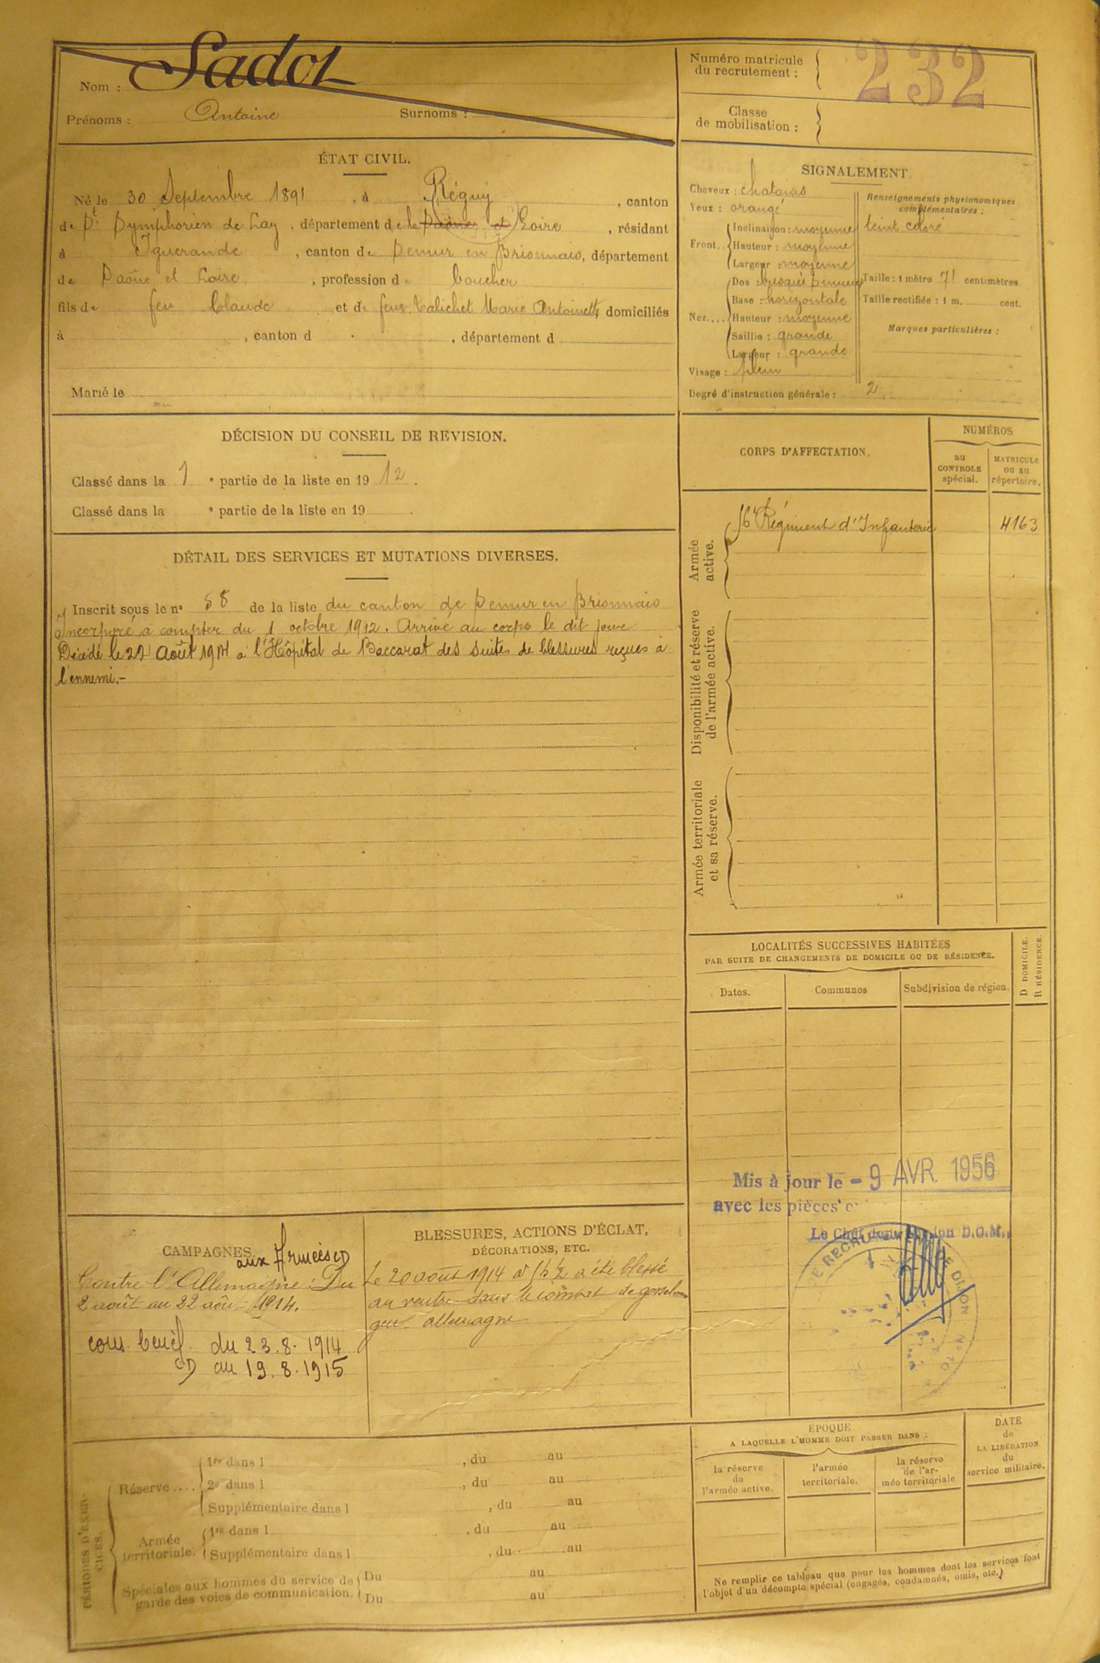 Nom : Sadot
Prénoms : Antoine Surnoms :
Numéro matricule
du recrutement : 232
Classe
de mobilisation :
ÉTAT CIVIL.
Né le 30 Septembre 1891, à Régny, canton
de St Symphorien de Lay, département de la Loire, résidant
à Iguerande, canton de Semur en Brionnais, département
de Saône et Loire, profession de boucher
fils de feu Claude et de feue Marie Antoinette domiciliés
à , canton d , département d
Marié le
SIGNALEMENT.
Cheveux : chatains
Yeux : orangé
Front. Inclinaison : moyenne
Hauteur : moyenne
Largeur : moyenne
Nez.... Dos
Base : horizontale
Hauteur : moyenne
Saillie : grande
Largeur : grande
Visage : plein
Renseignements physionomiques
complémentaires :
teint coloré
Taille : 1 mètre 71 centimètres.
Taille rectifiée : 1 m. cent.
Marques particulières :
Degré d'instruction générale : 2
DÉCISION DU CONSEIL DE REVISION.
Classé dans la 1 e partie de la liste en 1912.
Classé dans la e partie de la liste en 19
DÉTAIL DES SERVICES ET MUTATIONS DIVERSES.
Inscrit sous le no 58 de la liste du canton de Semur en Brionnais
Incorporé à compter du 1 octobre 1912. Arrivé au corps le dit jour
Décédé le 22 Août 1914 à l'Hôpital de Baccarat des suites de blessures reçues à
l'ennemi.-
CORPS D'AFFECTATION.
NUMÉROS
au
CONTROLE
spécial.
MATRICULE
OU AU
répertoire.
Armée
active.
Régiment d'Infanterie 4163
Disponibilité et réserve
de l'armée active.
Armée territoriale
et sa réserve.
LOCALITÉS SUCCESSIVES HABITÉES
PAR SUITE DE CHANGEMENTS DE DOMICILE OU DE RÉSIDENCE.
Dates. Communes Subdivision de région.
D DOMICILE.
R RÉSIDENCE.
Mis à jour le - 9 AVR. 1956
avec les pièces
CAMPAGNES.
aux Armées CD
Contre l'Allemagne : Du
2 août au 22 août 1914.
du 23.8.1914
CD au 19.8.1915
BLESSURES, ACTIONS D'ÉCLAT,
DÉCORATIONS, ETC.
Le 20 août 1914 à a été blessé
au ventre dans le combat de
allemagne
PÉRIODES D'EXER-
CICES.
Réserve .... 1re dans l , du au
2e dans l , du au
Supplémentaire dans l , du au
Armée
territoriale. 1re dans l , du au
Supplémentaire dans l , du au
Spéciales aux hommes du service de
garde des voies de communication. Du au
Du au
ÉPOQUE
A LAQUELLE L'HOMME DOIT PASSER DANS :
la réserve
de
l'armée active.
l'armée
territoriale.
la réserve
de l'ar-
mée territoriale
DATE
de
LA LIBÉRATION
du
service militaire.
Ne remplir ce tableau que pour les hommes dont les services font
l'objet d'un décompte spécial (engagés, condamnés, omis, etc.)